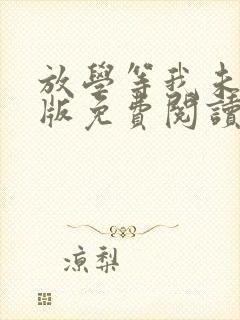 放學等我未
版免費閱讀
涼梨